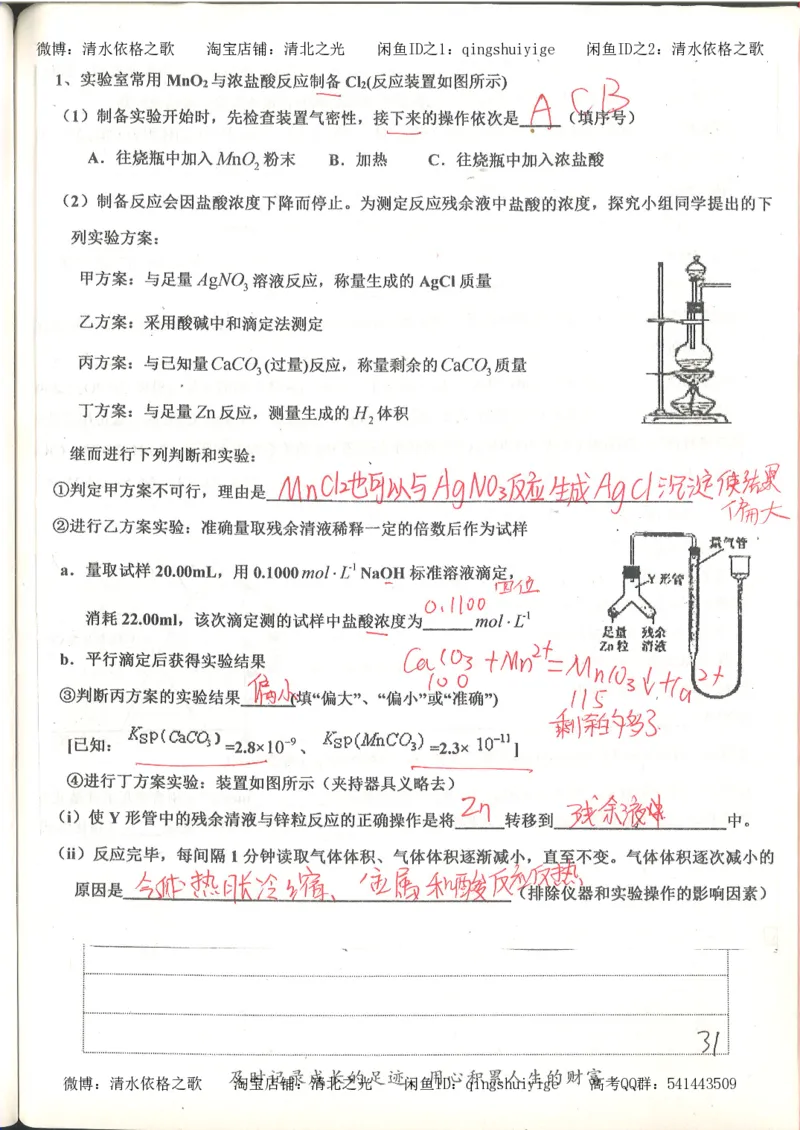 微博：清水依格之歌 淘宝店铺：清北之光 闲鱼ID之1：qingshuiyige 闲鱼ID之2：清水依格之歌
1、实验室常用 MnO₂与浓盐酸反应制备 Cl₂(反应装置如图所示)
（1）制备实验开始时，先检查装置气密性，接下来的操作依次是 A C B （填序号）
A．往烧瓶中加入MnO₂粉末 B．加热 C．往烧瓶中加入浓盐酸
（2）制备反应会因盐酸浓度下降而停止。为测定反应残余液中盐酸的浓度，探究小组同学提出的下
列实验方案：
甲方案：与足量 AgNO₃ 溶液反应，称量生成的 AgCl 质量
乙方案：采用酸碱中和滴定法测定
丙方案：与已知量CaCO₃(过量)反应，称量剩余的CaCO₃质量
丁方案：与足量Zn反应，测量生成的H₂体积
继而进行下列判断和实验：
①判定甲方案不可行，理由是 MnCl₂也可以与AgNO₃反应生成AgCl沉淀使结果
偏大
②进行乙方案实验：准确量取残余清液稀释一定的倍数后作为试样
量气管
Y形管
足量 残余
Zn粒 清液
a．量取试样 20.00mL，用 0.1000 mol·L⁻¹ NaOH 标准溶液滴定，
四位
消耗 22.00ml，该次滴定测的试样中盐酸浓度为 0.1100 mol·L⁻¹
b．平行滴定后获得实验结果
CaCO₃ + Mn²⁺ = MnCO₃↓ + Ca²⁺
100 115
剩余的多了
③判断丙方案的实验结果 偏小 (填“偏大”、“偏小”或“准确”)
[已知： Ksp(CaCO₃) =2.8×10⁻⁹、 Ksp(MnCO₃) =2.3× 10⁻¹¹ ]
④进行丁方案实验：装置如图所示（夹持器具义略去）
（i）使 Y 形管中的残余清液与锌粒反应的正确操作是将 Zn 转移到 残余液中 中。
（ii）反应完毕，每间隔 1 分钟读取气体体积、气体体积逐渐减小，直至不变。气体体积逐次减小的
原因是 气体热胀冷缩、金属和酸反应放热 （排除仪器和实验操作的影响因素）
31
及时记录成长的足迹，用心积累人生的财富
微博：清水依格之歌 淘宝店铺：清北之光 闲鱼ID：qingshuiyige 高考QQ群：541443509